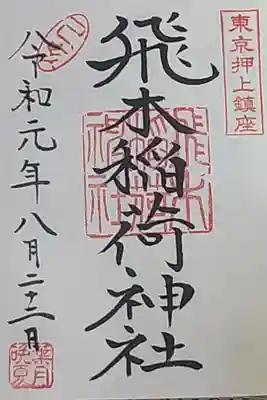 東京押上鎮座
飛木稲荷神社
令和元年八月二十二日
葉月
晩夏